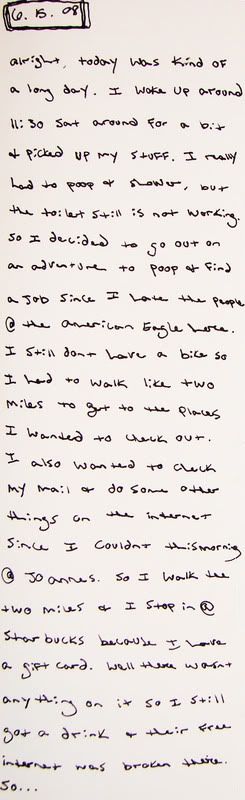 6.15.08
alright, today was kind of
a long day. I woke up around
11:30 sat around for a bit
& picked up my stuff. I really
had to poop & shower, but
the toilet still is not working.
so I decided to go out on
an adventure to poop & find
a job since I hate the people
@ the american Eagle here.
I still dont have a bike so
I had to walk like two
miles to get to the places
I wanted to check out.
I also wanted to check
my mail & do some other
things on the internet
since I couldnt this morning
@ Joannes. so I walk the
two miles & I stop in @
starbucks because I have
a gift card. well there wasnt
anything on it so I still
got a drink & their free
internet was broken there.
so...